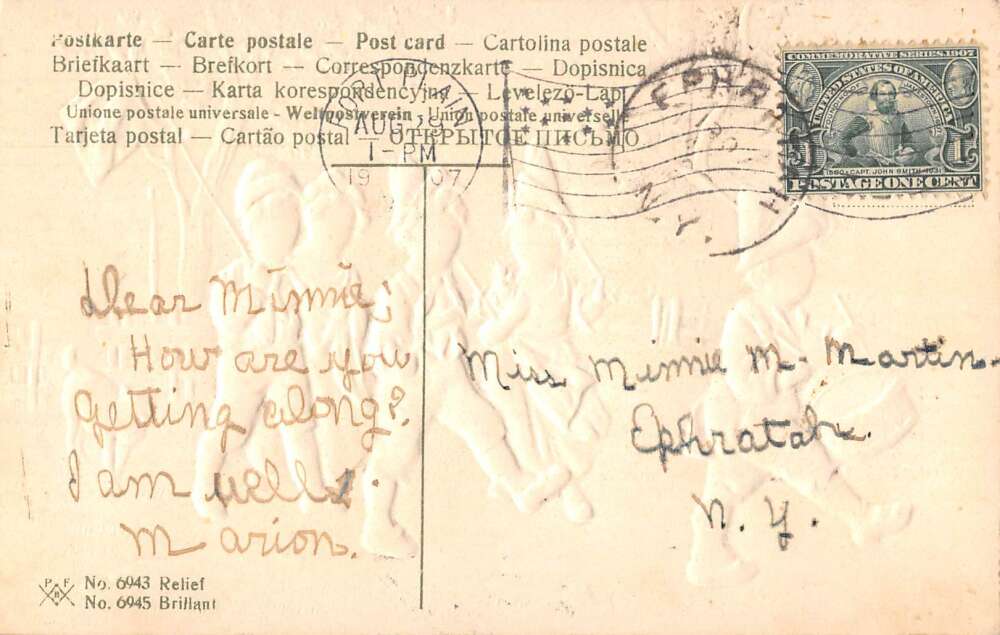 Postkarte — Carte postale — Post card — Cartolina postale
Briefkaart — Brefkort — Correspondenzkarte — Dopisnica
Dopisnice — Karta korespondencyjna — Levelezö-Lap
Unione postale universale - Weltpostverein - Union postale universelle
Tarjeta postal — Cartão postal — ОТКРЫТОЕ ПИСЬМО
AUG
1-PM
1907
EPHRATAH
N.Y.
COMMEMORATIVE SERIES 1907
UNITED STATES OF AMERICA
1580 CAPT. JOHN SMITH 1631
1 1
POSTAGE ONE CENT
Dear Minnie;
How are you
getting along?
I am well.
Marion.
Miss Minnie M. Martin.
Ephratah.
N. Y.
P F B
No. 6943 Relief
No. 6945 Brillant